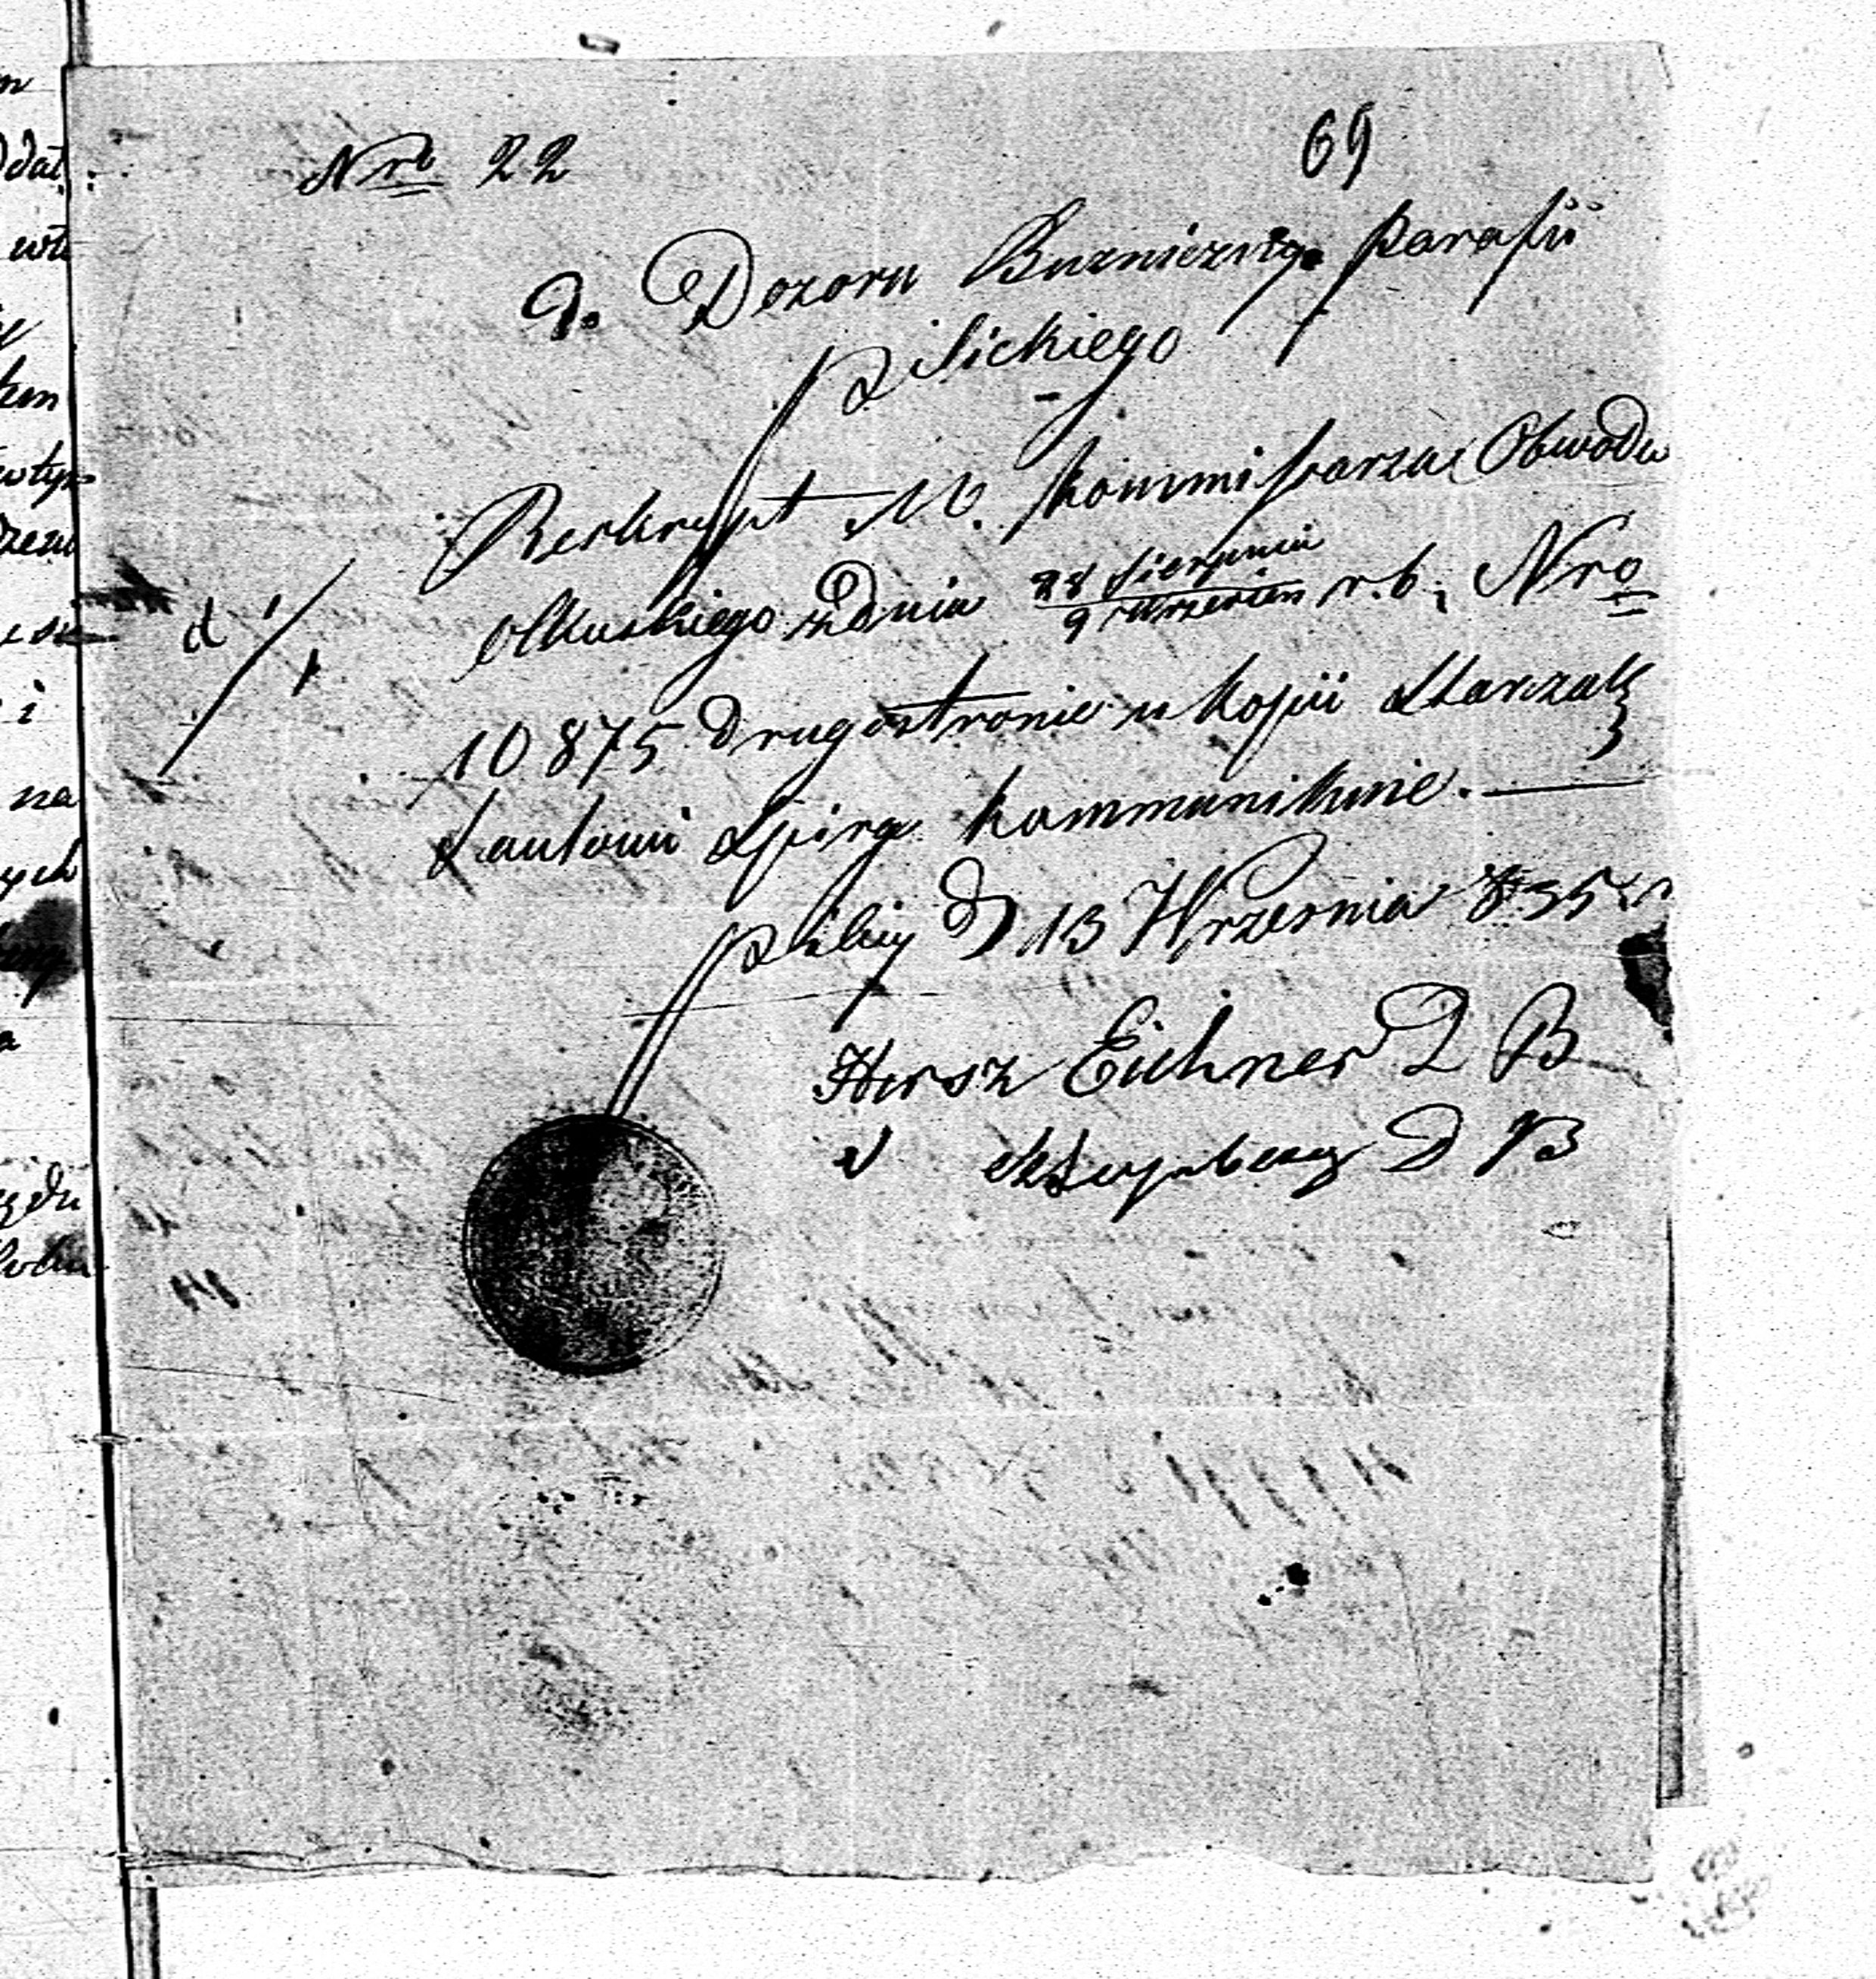 Nro 22
69
d. Dozoru Buzniczego Parafii
Pilickiego
Reskrypt W. Kommissarza Obwodu
Olkuskiego z dnia 28 Sierpnia / 9 Wrzesien r. b. Nro
10875 drugostronie w kopii Starzak
Lantowi Szpira kommunikuie. —
Pilicy d 13 Wrzesnia 835 r
Hersz Eichner D B
D B